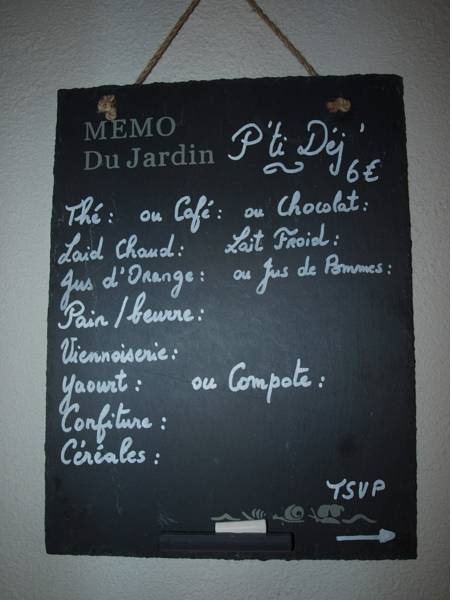 MEMO
Du Jardin
P'ti Déj'
6€
Thé : ou Café : ou Chocolat :
Laid Chaud : Lait Froid :
Jus d'Orange : ou Jus de Pommes :
Pain / beurre :
Viennoiserie :
Yaourt : ou Compote :
Confiture :
Céréales :
TSVP